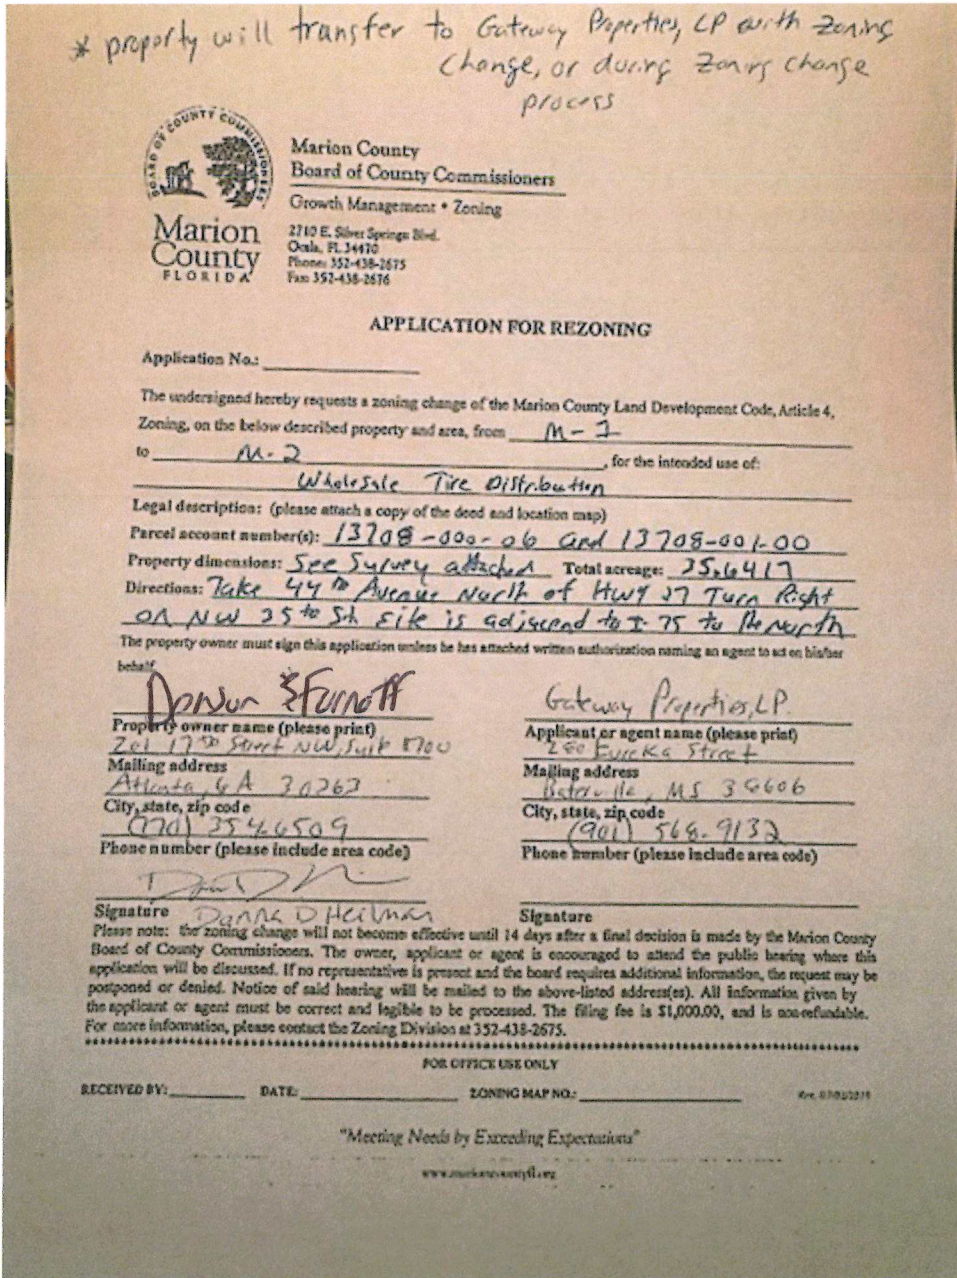 * property will transfer to Gateway Properties, LP with Zoning
Change, or during Zoning change
process
BOARD OF COUNTY COMMISSIONERS
Marion
County
FLORIDA
Marion County
Board of County Commissioners
Growth Management • Zoning
2710 E. Silver Springs Blvd.
Ocala, FL 34470
Phone: 352-438-2675
Fax: 352-438-2676
APPLICATION FOR REZONING
Application No.:
The undersigned hereby requests a zoning change of the Marion County Land Development Code, Article 4,
Zoning, on the below described property and area, from M-1
to M-2, for the intended use of:
Wholesale Tire Distribution
Legal description: (please attach a copy of the deed and location map)
Parcel account number(s): 13708-000-06 and 13708-001-00
Property dimensions: See Survey attached Total acreage: 25.6417
Directions: Take 44th Avenue North of Hwy 27 Turn Right
on NW 25th St. Site is adjacend to I-75 to the North
The property owner must sign this application unless he has attached written authorization naming an agent to act on his/her
behalf.
Property owner name (please print)
201 17th Street NW, Suite 1700
Mailing address
Atlanta, GA 30363
City, state, zip code
(770) 354-6509
Phone number (please include area code)
Signature Danna D Heilman
Gateway Properties, LP.
Applicant or agent name (please print)
280 Eureka Street
Mailing address
Batesville, MS 38606
City, state, zip code
(901) 568-9132
Phone number (please include area code)
Signature
Please note: the zoning change will not become effective until 14 days after a final decision is made by the Marion County
Board of County Commissioners. The owner, applicant or agent is encouraged to attend the public hearing where this
application will be discussed. If no representative is present and the board requires additional information, the request may be
postponed or denied. Notice of said hearing will be mailed to the above-listed address(es). All information given by
the applicant or agent must be correct and legible to be processed. The filing fee is $1,000.00, and is non-refundable.
For more information, please contact the Zoning Division at 352-438-2675.
FOR OFFICE USE ONLY
RECEIVED BY: DATE: ZONING MAP NO.: Rev.
"Meeting Needs by Exceeding Expectations"
www.marioncountyfl.org